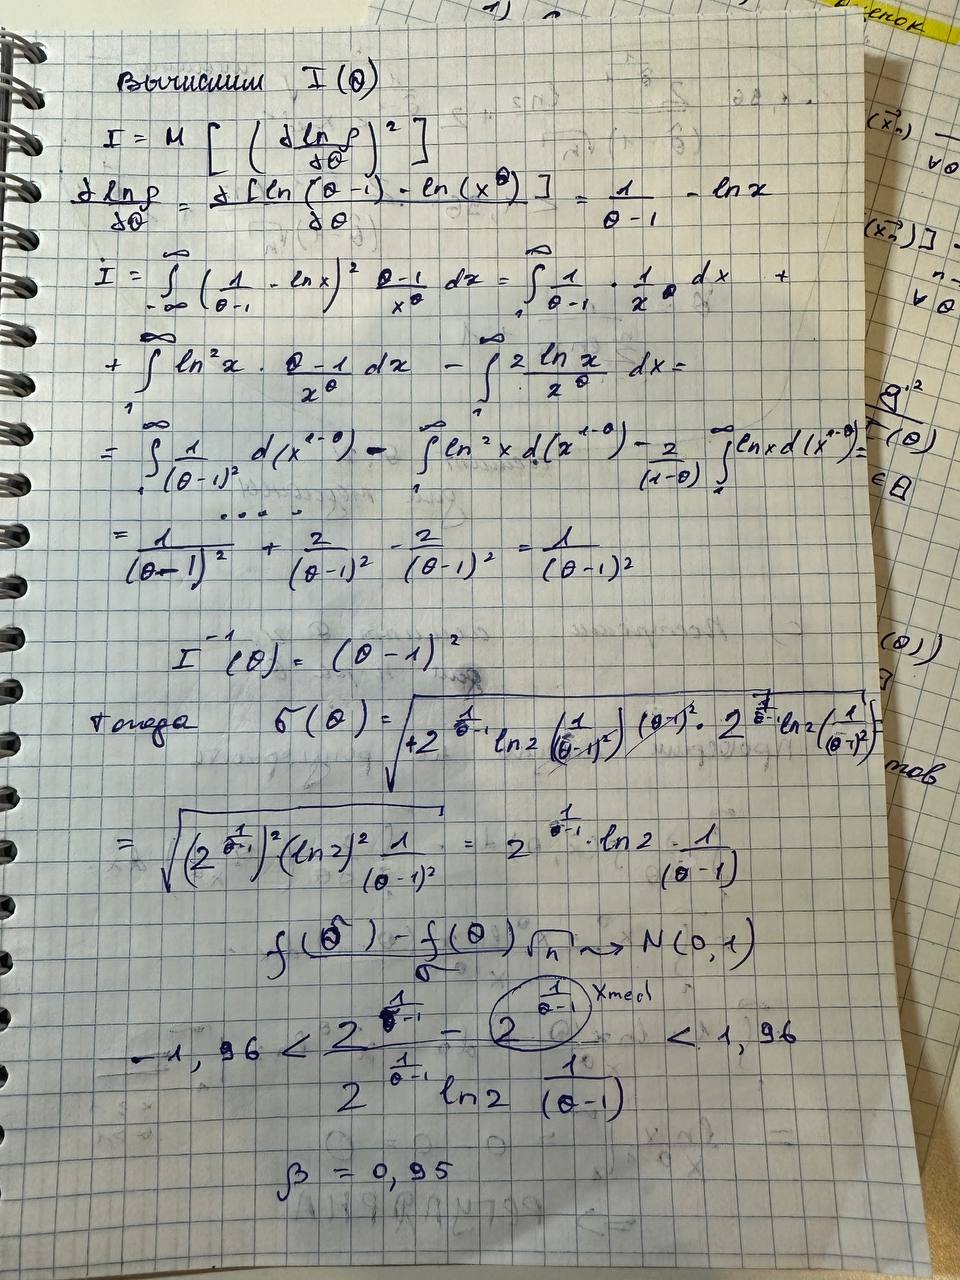 Вычислим I(θ)
I = M [ ( ∂ ln ρ / ∂θ )² ]
∂ ln ρ / ∂θ = ∂ [ ln(θ-1) - ln(x^θ) ] / ∂θ = 1/(θ-1) - ln x
I = ∫_{-∞}^{∞} ( 1/(θ-1) - ln x )² (θ-1)/x^θ dx = ∫_1^∞ 1/(θ-1) · 1/x^θ dx +
+ ∫_1^∞ ln²x · (θ-1)/x^θ dx - ∫_1^∞ 2 ln x / x^θ dx =
= ∫_1^∞ 1/(θ-1)² d(x^{1-θ}) - ∫_1^∞ ln²x d(x^{1-θ}) - 2/(1-θ) ∫_1^∞ ln x d(x^{1-θ}) =
= 1/(θ-1)² + 2/(θ-1)² - 2/(θ-1)² = 1/(θ-1)²
I^{-1}(θ) = (θ-1)²
Тогда σ(θ) = √( +2^{1/(θ-1)} ln2 (1/(θ-1)²) (θ-1)² · 2^{1/(θ-1)} ln2 (1/(θ-1)²) ) =
= √( (2^{1/(θ-1)})² (ln2)² 1/(θ-1)² ) = 2^{1/(θ-1)} · ln2 · 1/(θ-1)
( f(θ̃) - f(θ) ) / σ √n ⇝ N(0,1)
-1,96 < ( 2^{1/(θ̃-1)} - 2^{1/(θ-1)} ) / ( 2^{1/(θ-1)} ln2 1/(θ-1) ) < 1,96
xmed
β = 0,95
1)
(x⃗n)
∀θ
(x⃗n)]
∀θ
g'²
I(θ)
∈ Θ
(θ))
тов